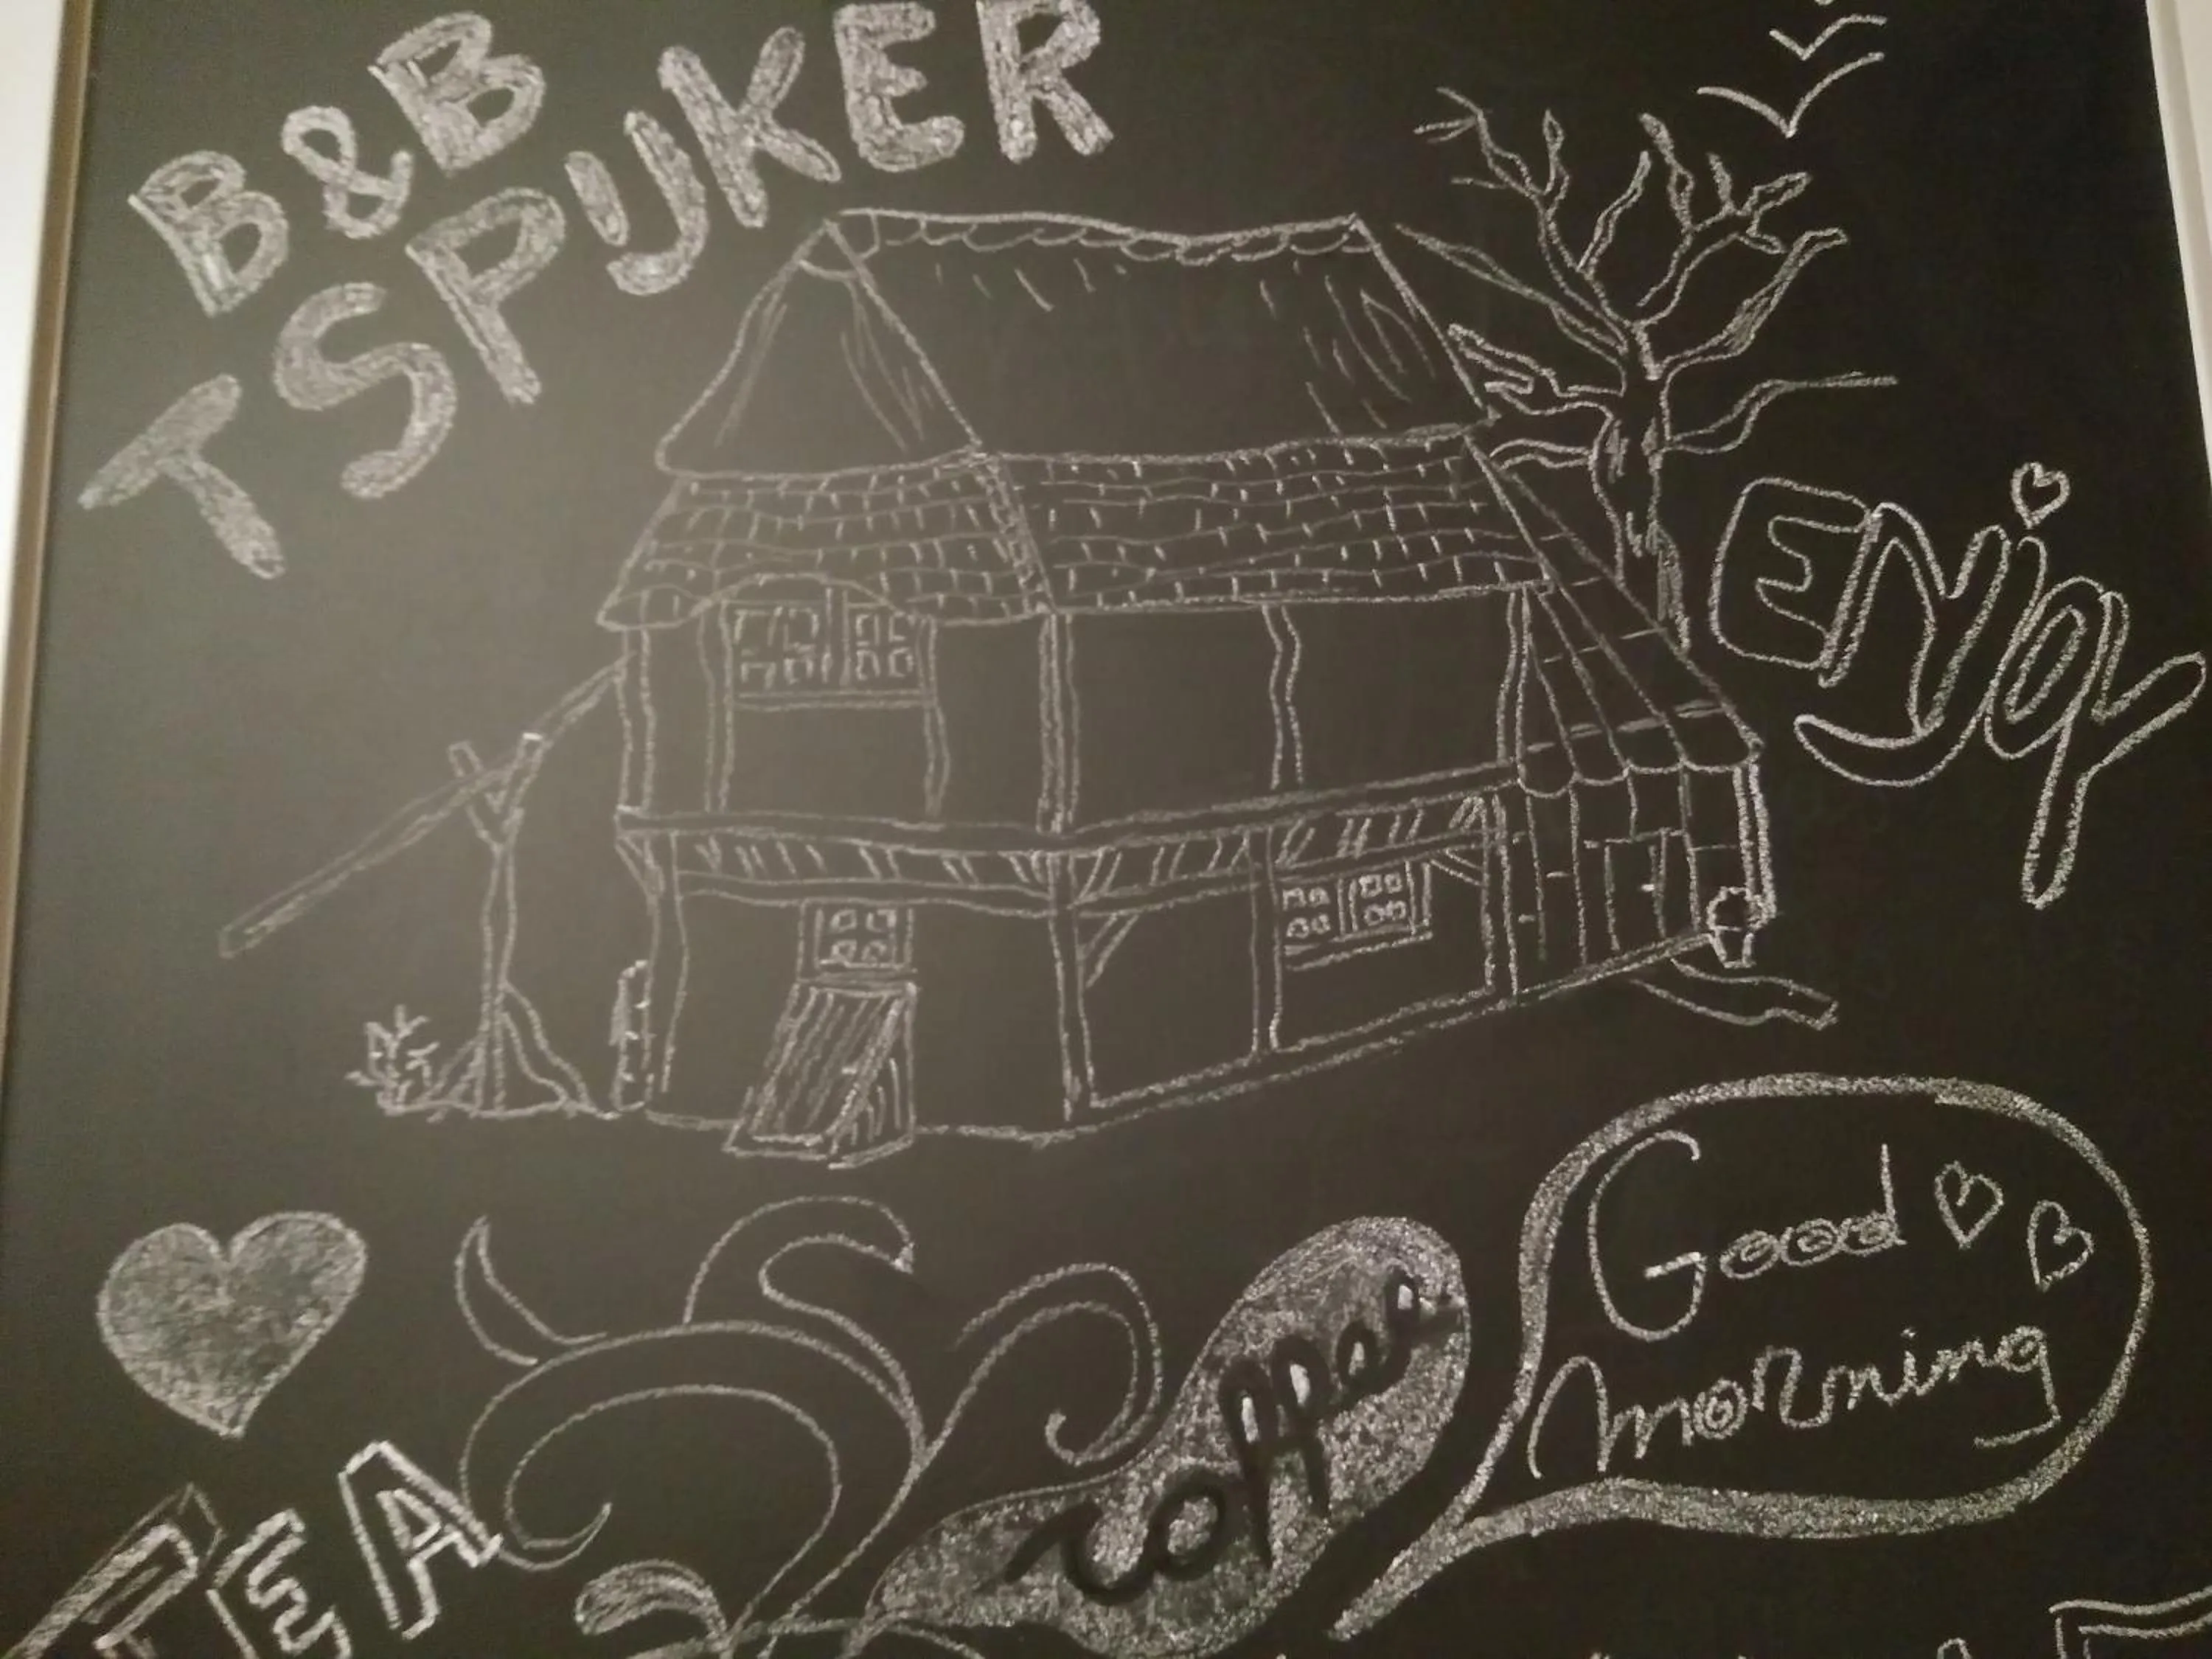 B&B
T SPIJKER
ENJOY
Good
morning
coffee
TEA